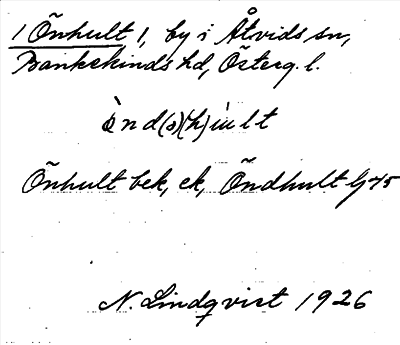 1 Önhult 1, by i Åtvids sn,
Bankekinds hd, Österg. l.
ö̀nd(ə)(h)ùlt
Önhult bek, ek, Öndhult
N. Lindqvist 1926